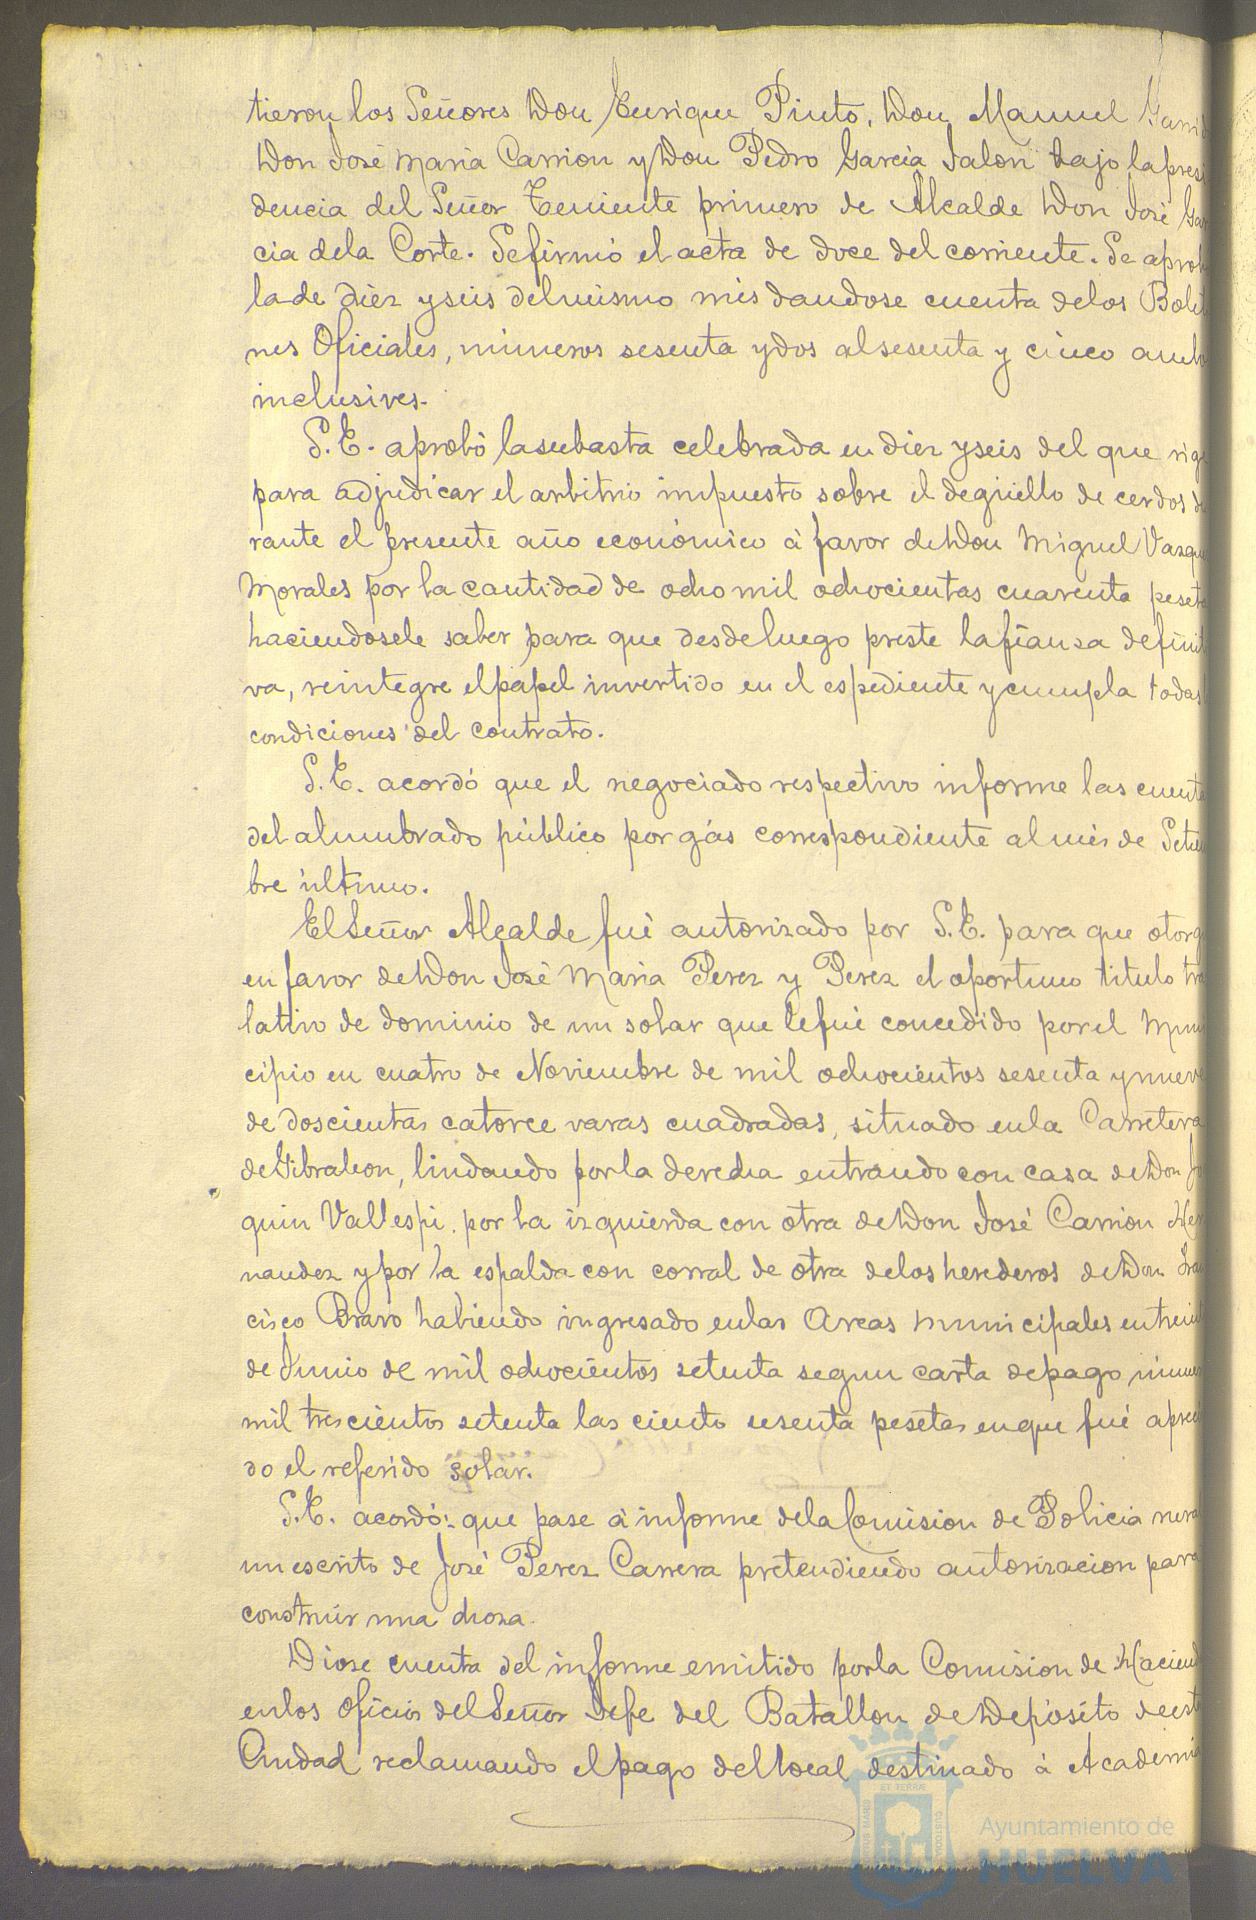 tieron los Señores Don Enrique Pinto, Don Manuel Garrid
Don José Maria Carrion y Don Pedro Garcia Jalon bajo la presi
dencia del Señor Teniente primero de Alcalde Don José Gar
cia dela Corte. Se firmó el acta de doce del corriente. Se aprob
la de diez y seis del mismo mes dandose cuenta delos Boleti
nes Oficiales, números sesenta y dos al sesenta y cinco ambo
inclusives.
S.E. aprobó la subasta celebrada en diez y seis del que rige
para adjudicar el arbitrio impuesto sobre el degüello de cerdos du
rante el presente año económico á favor de Don Miguel Vazque
Morales por la cantidad de ocho mil ochocientas cuarenta peseta
haciendosele saber para que desde luego preste la fianza definiti
va, reintegre el papel invertido en el espediente y cumpla todas l
condiciones del contrato.
S.E. acordó que el negociado respectivo informe las cuenta
del alumbrado público por gás correspondiente al més de Setiem
bre último.
El Señor Alcalde fué autorizado por S.E. para que otorg
en favor de Don José Maria Perez y Perez el oportuno titulo tra
lativo de dominio de un solar que le fué concedido por el Muni
cipio en cuatro de Noviembre de mil ochocientos sesenta y nueve
de doscientas catorce varas cuadradas, situado en la Carretera
de Gibraleon, lindando por la derecha entrando con casa de Don Joa
quin Vallespi, por la izquierda con otra de Don José Carrion Her
nandez y por la espalda con corral de otra de los herederos de Don Fran
cisco Bravo habiendo ingresado en las Arcas municipales en treint
de Junio de mil ochocientos setenta segun carta de pago número
mil trescientos setenta las ciento sesenta pesetas en que fué aprecia
do el referido solar.
S.E. acordó: que pase á informe de la Comision de Policia rura
un escrito de José Perez Carrera pretendiendo autorizacion para
construir una choza.
Diose cuenta del informe emitido por la Comision de Haciend
en los oficios del Señor Jefe del Batallon de Depósito de est
Ciudad reclamando el pago del local destinado á Academia
Ayuntamiento de
HUELVA